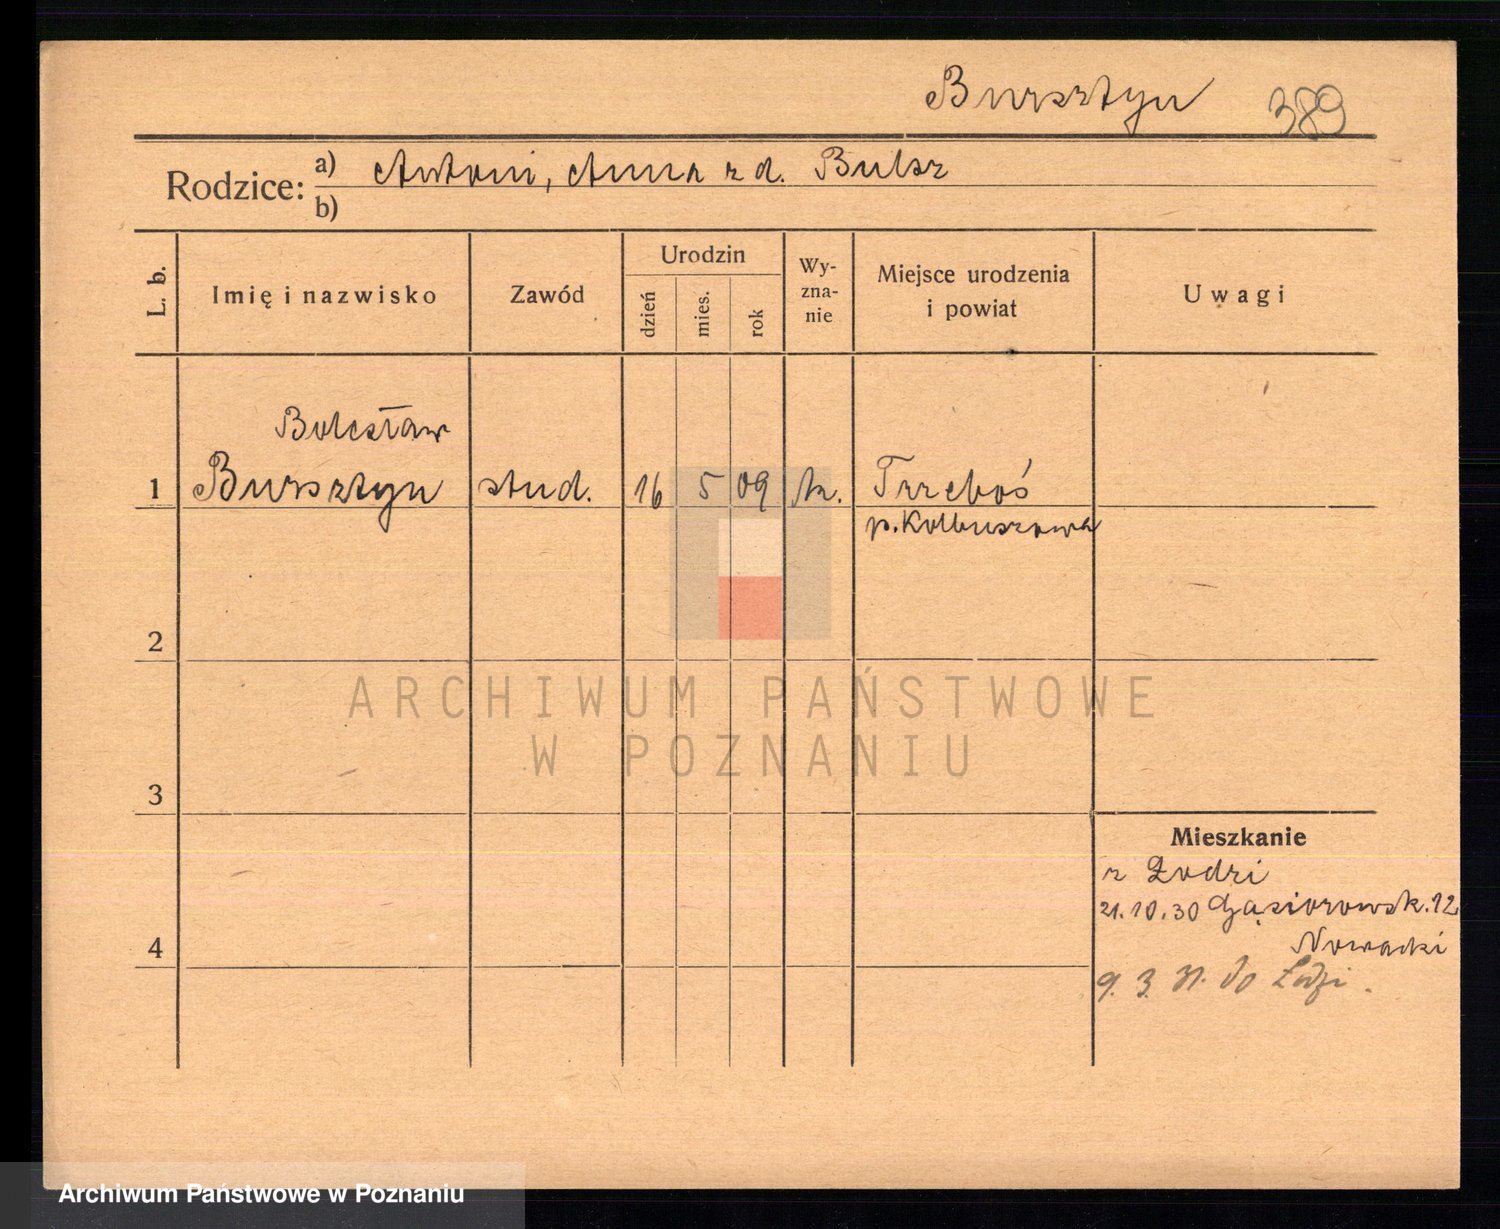 Bursztyn 389
Rodzice: a) Antoni, Anna z d. Bulsz
b)
L. b.
Imię i nazwisko
Zawód
Urodzin
dzień
mies.
rok
Wy-
zna-
nie
Miejsce urodzenia
i powiat
Uwagi
Bolesław
1 Bursztyn stud. 16 5 09 k. Trzeboś
p. Kolbuszowa
2
ARCHIWUM PAŃSTWOWE
W POZNANIU
3
Mieszkanie
z Łodzi
21.10.30 Gąsiorowsk. 12
Nowacki
4
9. 3. 31. do Łodzi.
Archiwum Państwowe w Poznaniu